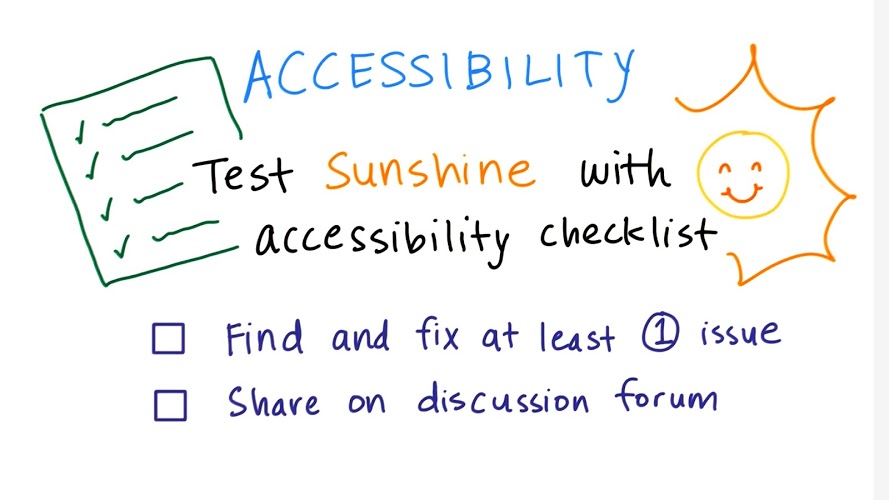 ACCESSIBILITY
Test Sunshine with
accessibility checklist
Find and fix at least 1 issue
Share on discussion forum